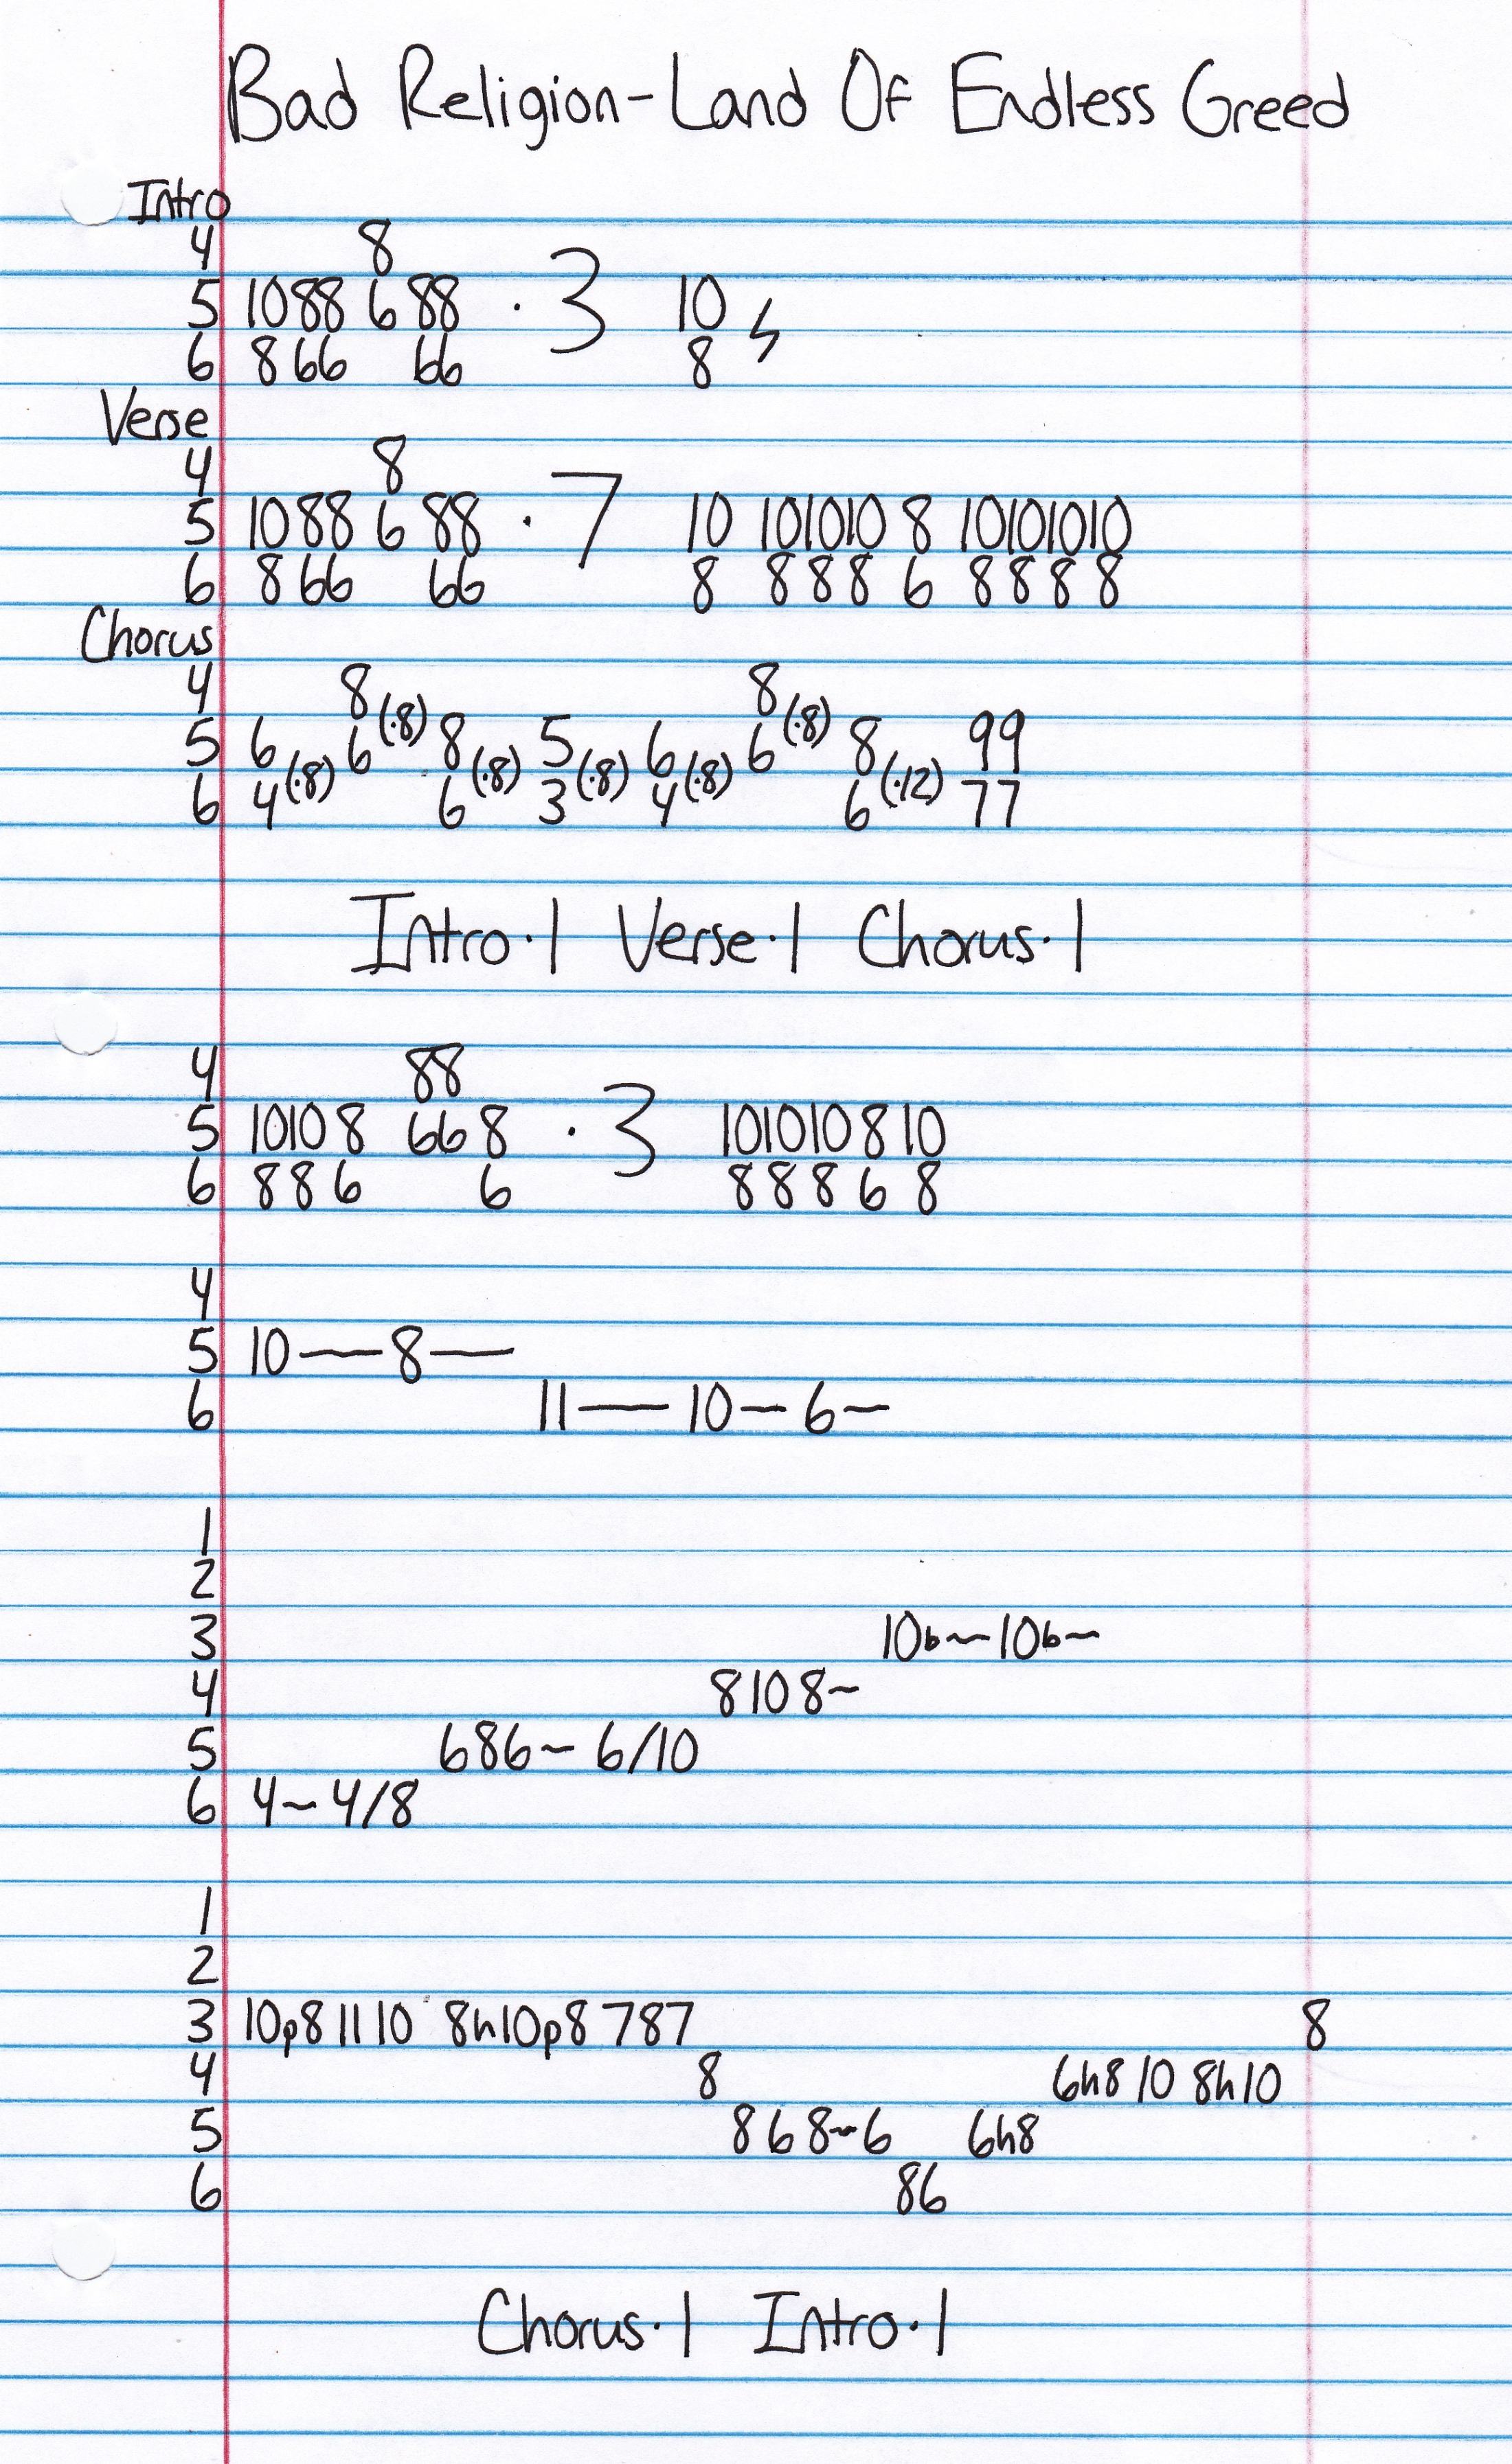 Bad Religion-Land Of Endless Greed
Intro
4 8
5 1088 6 88 · 3 10 𝄽
6 866 66 8
Verse
4 8
5 1088 6 88 · 7 10 101010 8 10101010
6 866 66 8 888 6 8888
Chorus
4 8 8
5 6 6(·8) 8 5 6 6(·8) 8 99
6 4(·8) 6(·8) 3(·8) 4(·8) 6(·12) 77
Intro·1 Verse·1 Chorus·1
4 88
5 10108 668 · 3 101010810
6 886 6 88868
4
5 10—8—
6 11—10—6—
1
2
3 10b~10b~
4 8108~
5 686~ 6/10
6 4~ 4/8
1
2
3 10p81110 8h10p8787 8
4 8 6h8 10 8h10
5 868~6 6h8
6 86
Chorus·1 Intro·1